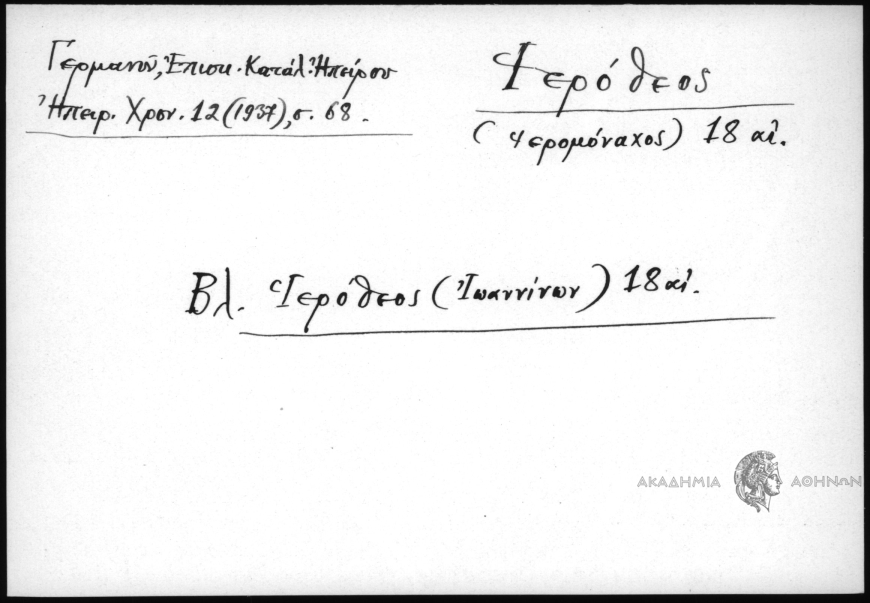 Γερμανοῦ, Ἐπισκ. Κατάλ. Ἠπείρου
Ἠπειρ. Χρον. 12 (1937), σ. 68.
Ἱερόθεος
(ἱερομόναχος) 18 αἰ.
Βλ. Ἱερόθεος (Ἰωαννίνων) 18 αἰ.
ΑΚΑΔΗΜΙΑ ΑΘΗΝΩΝ